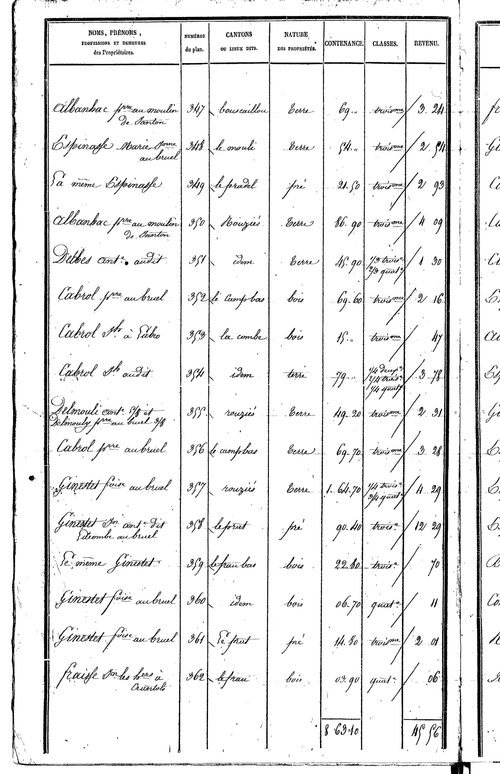 NOMS, PRÉNOMS, PROFESSIONS ET DEMEURES des Propriétaires. NUMÉROS du plan. CANTONS OU LIEUX DITS. NATURE DES PROPRIÉTÉS. CONTENANCE. CLASSES. REVENU.
Albanhac pre au moulin 347 bouscaillou Terre 69 .. troisme 3 24
de Santon
Espinasse Marie 348 le mouli Terre 54 .. troisme 2 54
au bruel
La même Espinasse 349 le pradel pré 21.50 troisme 2 93
Albanhac pre au moulin 350 Rouziés Terre 86.90 troisme 4 09
de Santon
Delbes ant. audit 351 idem Terre 45.90 1/3 trois 1 30
2/3 quat.
Cabrol pre au bruel 352 le camp bas bois 69.60 troisme 2 16
Cabrol à 353 la combe bois 15 .. troisme 47
Cabrol audit 354 idem terre 79 .. 3 78
1/4 trois
1/4 quat.
Delmouli ant. 5/8 et 355 rouziés Terre 49.20 troisme 2 31
Delmouly pre au bruel 3/8
Cabrol pre au bruel 356 le camp bas Terre 69.70 troisme 3 28
Ginestet foise au bruel 357 rouziés Terre 1.64.70 1/4 trois 4 29
3/4 quat.
Ginestet ant. dit 358 le prut pré 90.40 trois 12 29
au bruel
Le même Ginestet 359 le frau bas bois 22.80 trois 70
Ginestet foise au bruel 360 idem bois 06.70 quat. 11
Ginestet foise au bruel 361 Le prut pré 14.80 troisme 2 01
fraisse les hers à 362 le frau bois 03.90 quat. 06
8 63.10 45 56